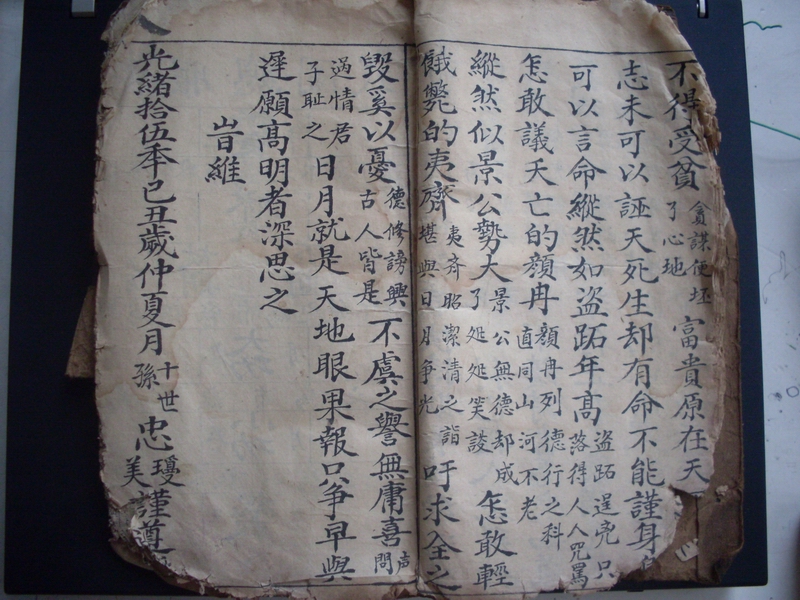 不得受貧貪謀便坯了心地富貴原在天
志未可以誣天死生却有命不能謹身
可以言命縱然如盜跖年高盜跖逞兇只落得人人咒罵
怎敢議天亡的顏冉顏冉列德行之科直同山河不老
縱然似景公勢大景公無德却成了処処笑談怎敢輕
餓斃的夷齊夷齊昭潔清之詣堪與日月争光吁求全之
毀奚以憂德修謗興古人皆是不虞之譽無庸喜声問
過情君子耻之日月就是天地眼果報只争早與
遲願高明者深思之
旹維
光緒拾伍年己丑歲仲夏月十世孫忠瓊美謹遵